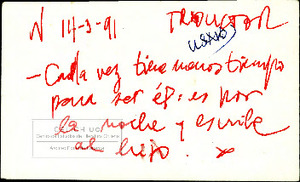 N 14-3-91 TRADUCTOR
usado
- Cada vez tiene menos tiempo
para ser él: es por
la noche y escribe
al hijo.